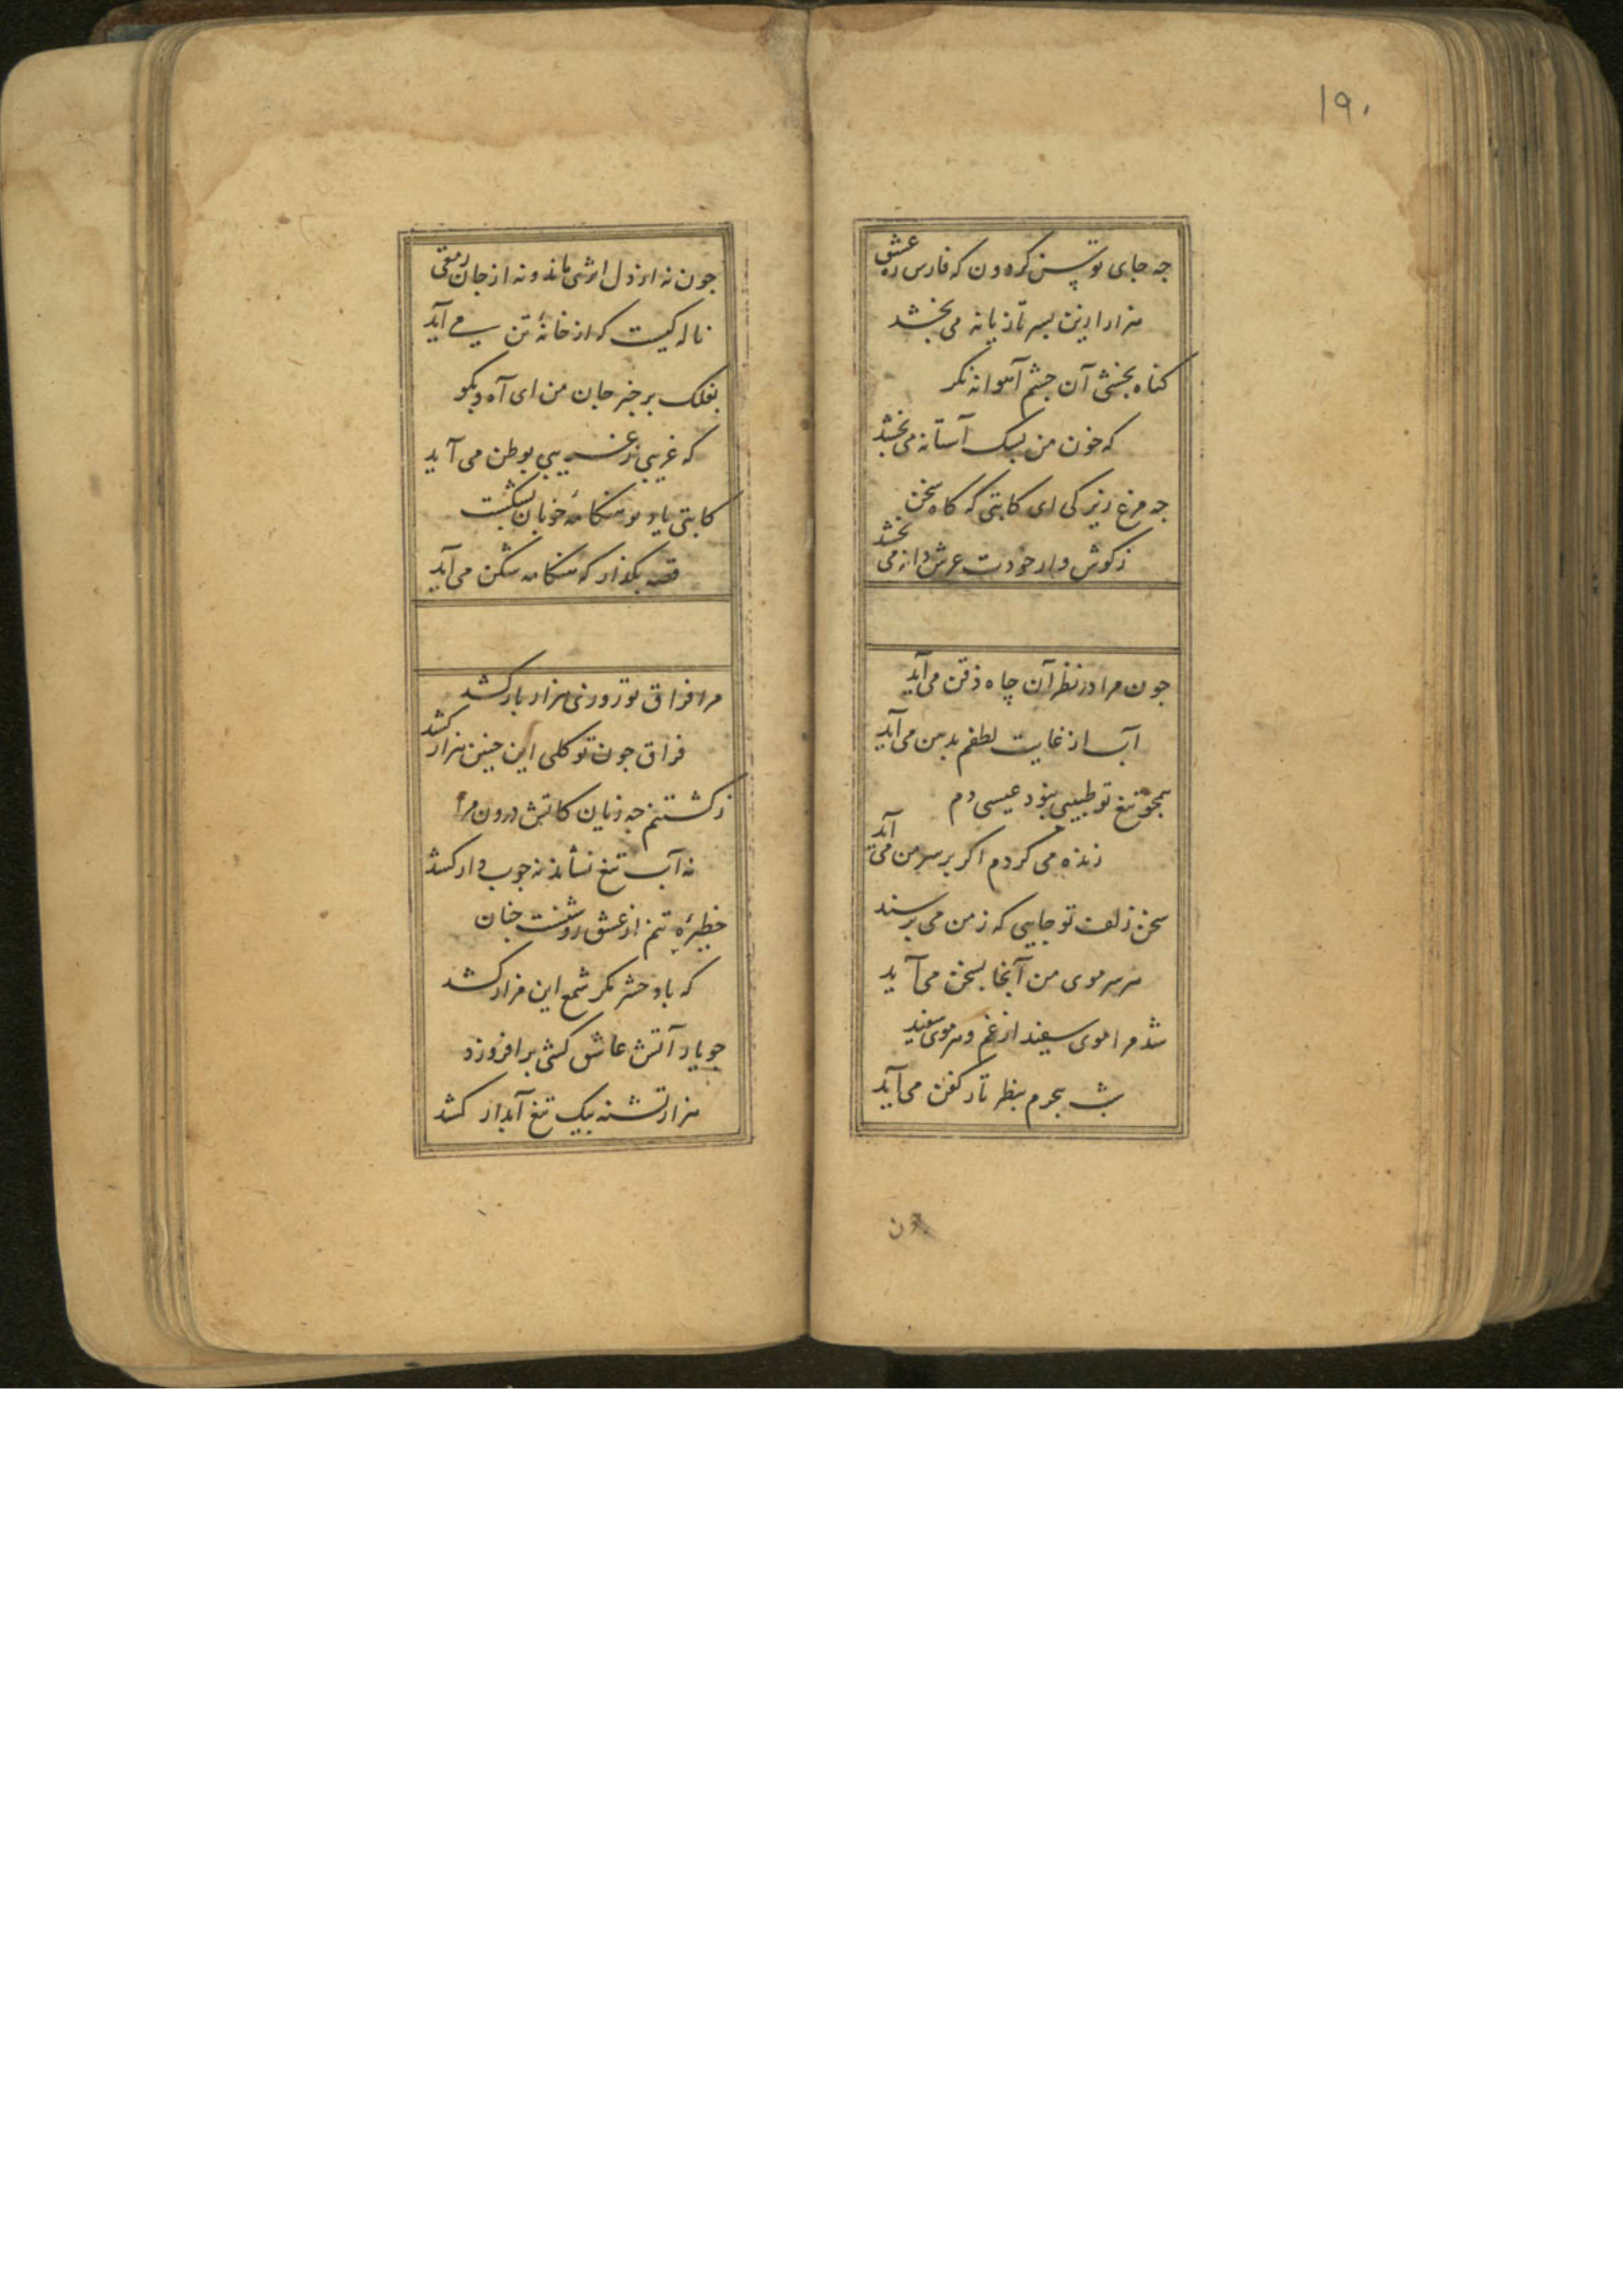 ۱۹۰
جه جای توسن کردون که فارس ره عشق
هزار ازین بسر تازیانه می بخشد
کناه بخشی آن جشم آهوانه نکر
که خون من بسک آستانه می بخشد
جه مرغ زیرکی ای کاتبی که کاه سخن
زکوش وار خودت عرش دانه می بخشد
جون مرا در نظر آن چاه ذقن می آید
آب از غایت لطفم بدهن می آید
همجو تیغ تو طبیبی نبود عیسی دم
زنده می کردم اکر بر سر من می آید
سخن زلف تو جایی که ز من می برسند
هر سر موی من آنجا بسخن می آید
شد مرا موی سفید از غم و هر موی سفید
شب هجرم بنظر تار کفن می آید
جون
جون نه از دل اثری ماند و نه از جان رمقی
ناله کیست که از خانهٔ تن می آید
بفلک بر خبر جان من ای آه و بکو
که غریبی ز غریبی بوطن می آید
کاتبی یار تو هنکامهٔ خوبان بشکست
قصه بکذار که هنکامه شکن می آید
مرا فراق تو روزی هزار بار کشد
فراق جون تو کلی این جنین هزار کشد
ز کشتنم جه زیان کاتش درون مرا
نه آب تیغ نشاند نه جوب دار کشد
خطیرهٔ تنم از عشق روشنست جنان
که باد حشر مکر شمع این مزار کشد
جو یار آتش عاشق کشی بر افروزد
هزار تشنه بیک تیغ آبدار کشد